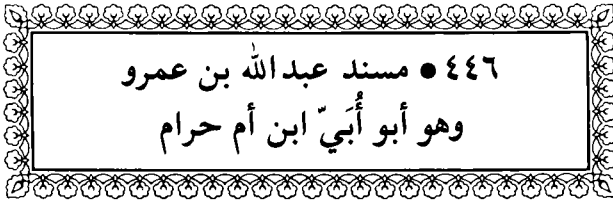 ٤٤٦ • مسند عبدالله بن عمرو
وهو أبو أُبَيّ ابن أم حرام